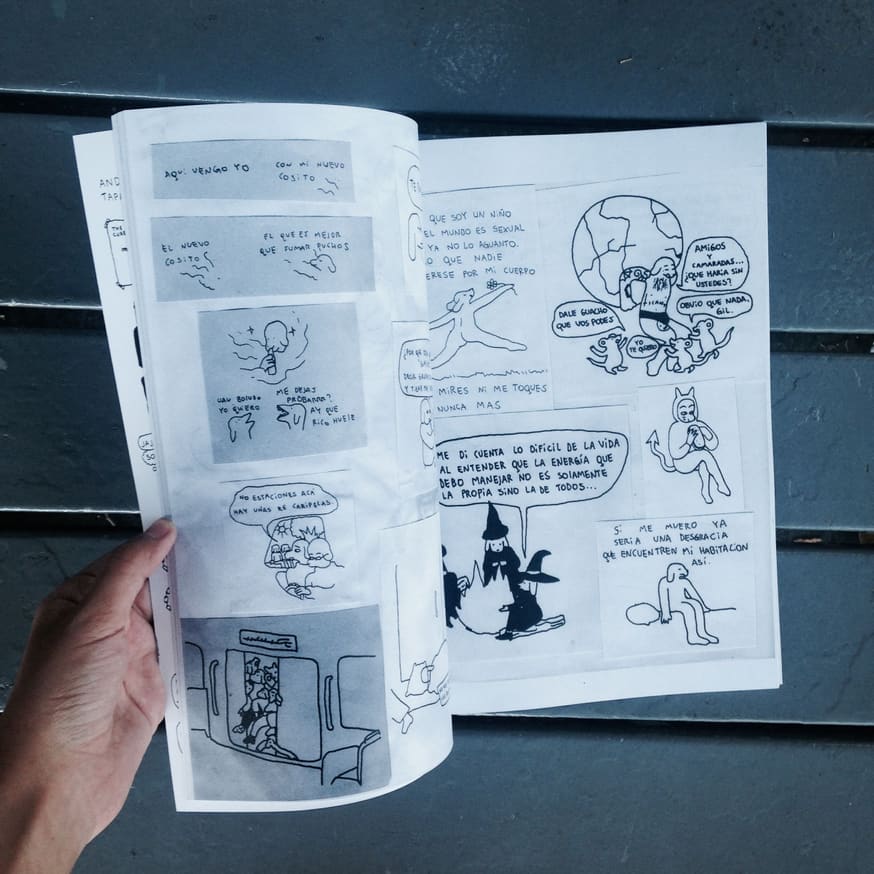 AND
TAPI
THE
CURE
AQUÍ VENGO YO
CON MI NUEVO
COSITO
EL NUEVO
COSITO
EL QUE ES MEJOR
QUE FUMAR PUCHOS
UAU BOLUDO
YO QUIERO
ME DEJAS
PROBARRR?
AY QUE
RICO HUELE
NO ESTACIONES ACA
HAY UÑAS RE CARIPELAS
QUE SOY UN NIÑO
EL MUNDO ES SEXUAL
YA NO LO AGUANTO.
O QUE NADIE
ERESE POR MI CUERPO
MIRES NI ME TOQUES
NUNCA MAS
AMIGOS
Y
CAMARADAS...
¿QUE HARIA SIN
USTEDES?
DALE GUACHO
QUE VOS PODES
YO
TE QUIERO
OBVIO QUE NADA,
GIL.
ME DI CUENTA LO DIFICIL DE LA VIDA
AL ENTENDER QUE LA ENERGÍA QUE
DEBO MANEJAR NO ES SOLAMENTE
LA PROPIA SINO LA DE TODOS...
SI ME MUERO YA
SERIA UNA DESGRACIA
QUE ENCUENTREN MI HABITACION
ASI.